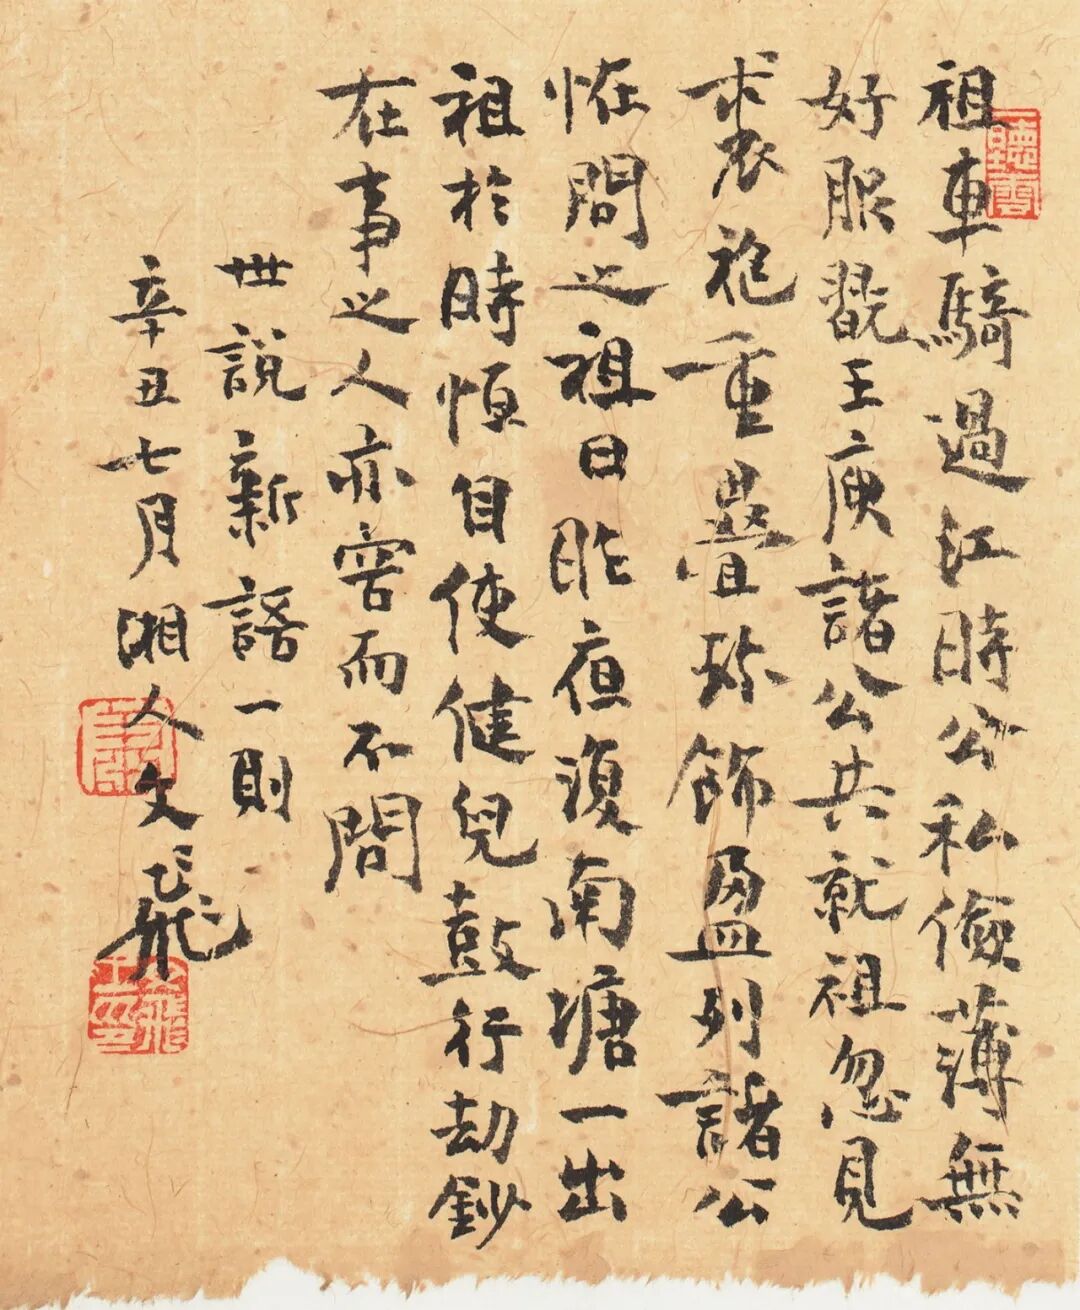 聽雲
祖車騎過江時公私儉薄無
好服翫王庾諸公共就祖忽見
裘袍重疊珍飾盈列諸公
恠問之祖曰昨夜復南塘一出
祖於時恒自使健兒鼓行劫鈔
在事之人亦容而不問
世說新語一則
辛丑七月湘人文飛